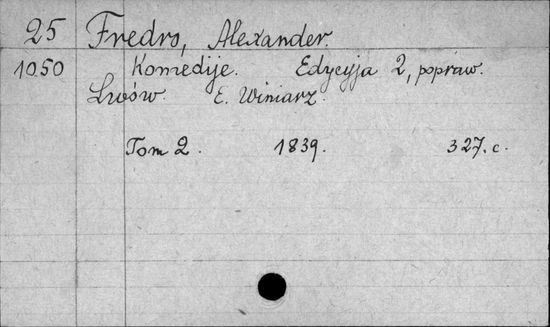 25 Fredro, Alexander.
1050 Komedije. Edycyja 2, popraw.
Lwów. E. Winiarz.
Tom 2. 1839. 327. c.